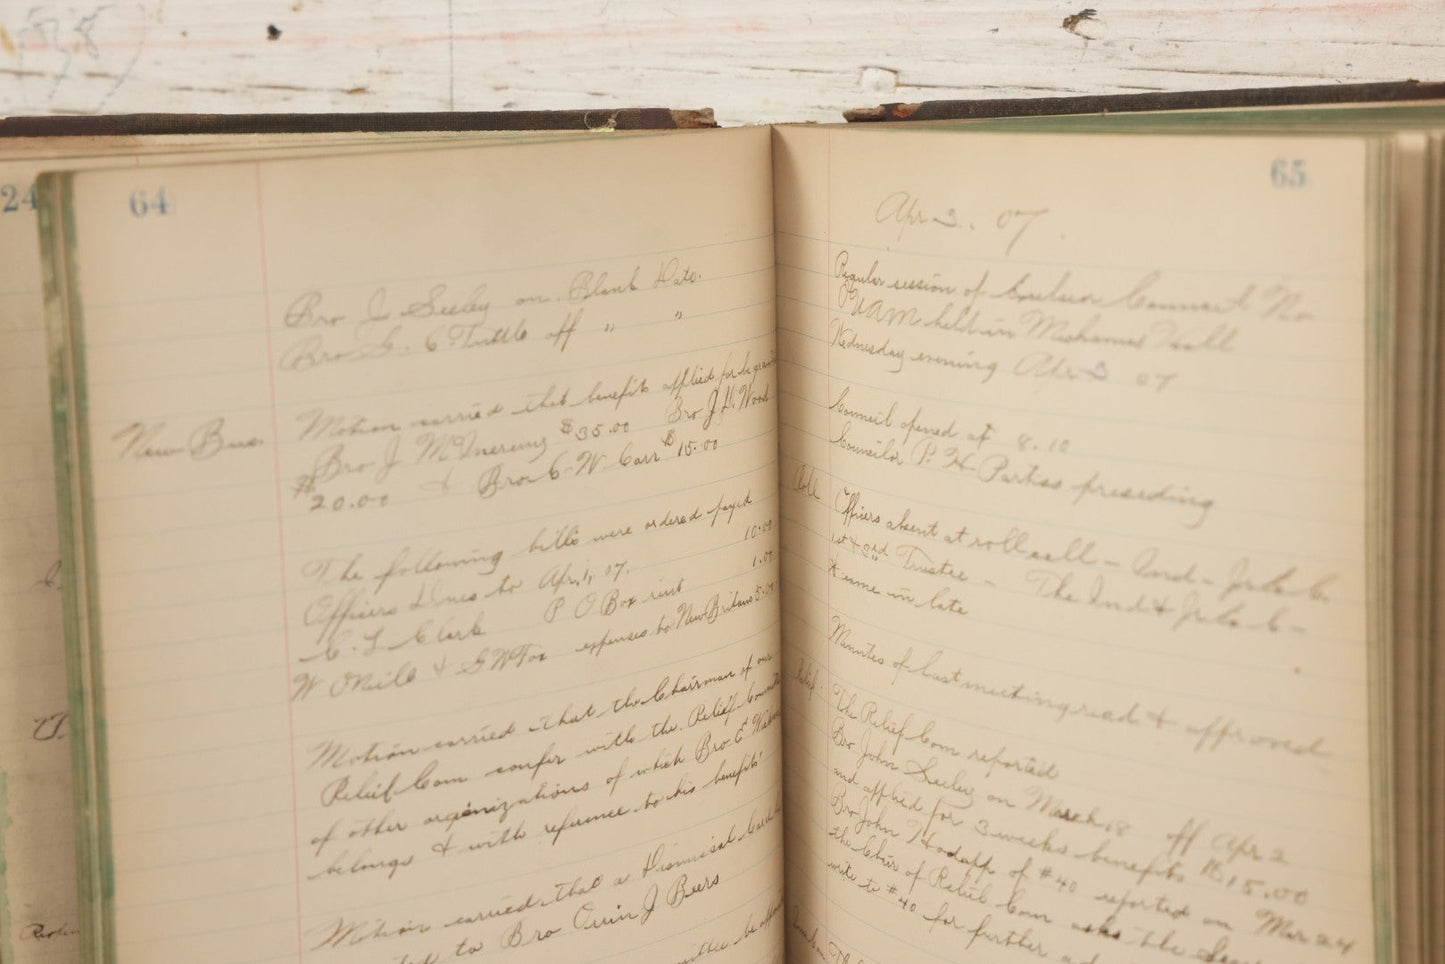 24
64
Bro J Seeley on Blank Date.
Bro G. C Tuttle off " "
New Bus. Motion carried that benefits applied for be
Bro J McInerney $35.00 Bro J. H. Wood
$20.00 & Bro C. W. Carr $15.00
The following bills were ordered payed
Officers Dues to Apr, 1, 07. 10.00
C. L. Clark P O Box rent 1.00
W ONeill & G W Fox expenses to New Britain 5.00
Motion carried that the Chairman of our
Relief Com confer with the Relief
of other organizations of which Bro. E
belongs & with reference to his benefits.
Motion carried that a Dismissal Card
to Bro Orrin J Beers
be
65
Apr 3. 07.
Regular session of Excelsior Council No
held in Mohawk Hall
Wednesday evening Apr 3 07
Council opened at 8.10
Councilor P. H. presiding
Roll Officers absent at roll call – Ind –
1st & 2nd Trustee – The Ind &
came in late
Minutes of last meeting read & approved
Relief. The Relief Com reported
Bro John Seeley on March 18 off Apr 2
and applied for 3 weeks benefits $15.00
Bro John Hodapp of #40 reported on Mar 24
the Chair of Relief Com asks the
write to #40 for further